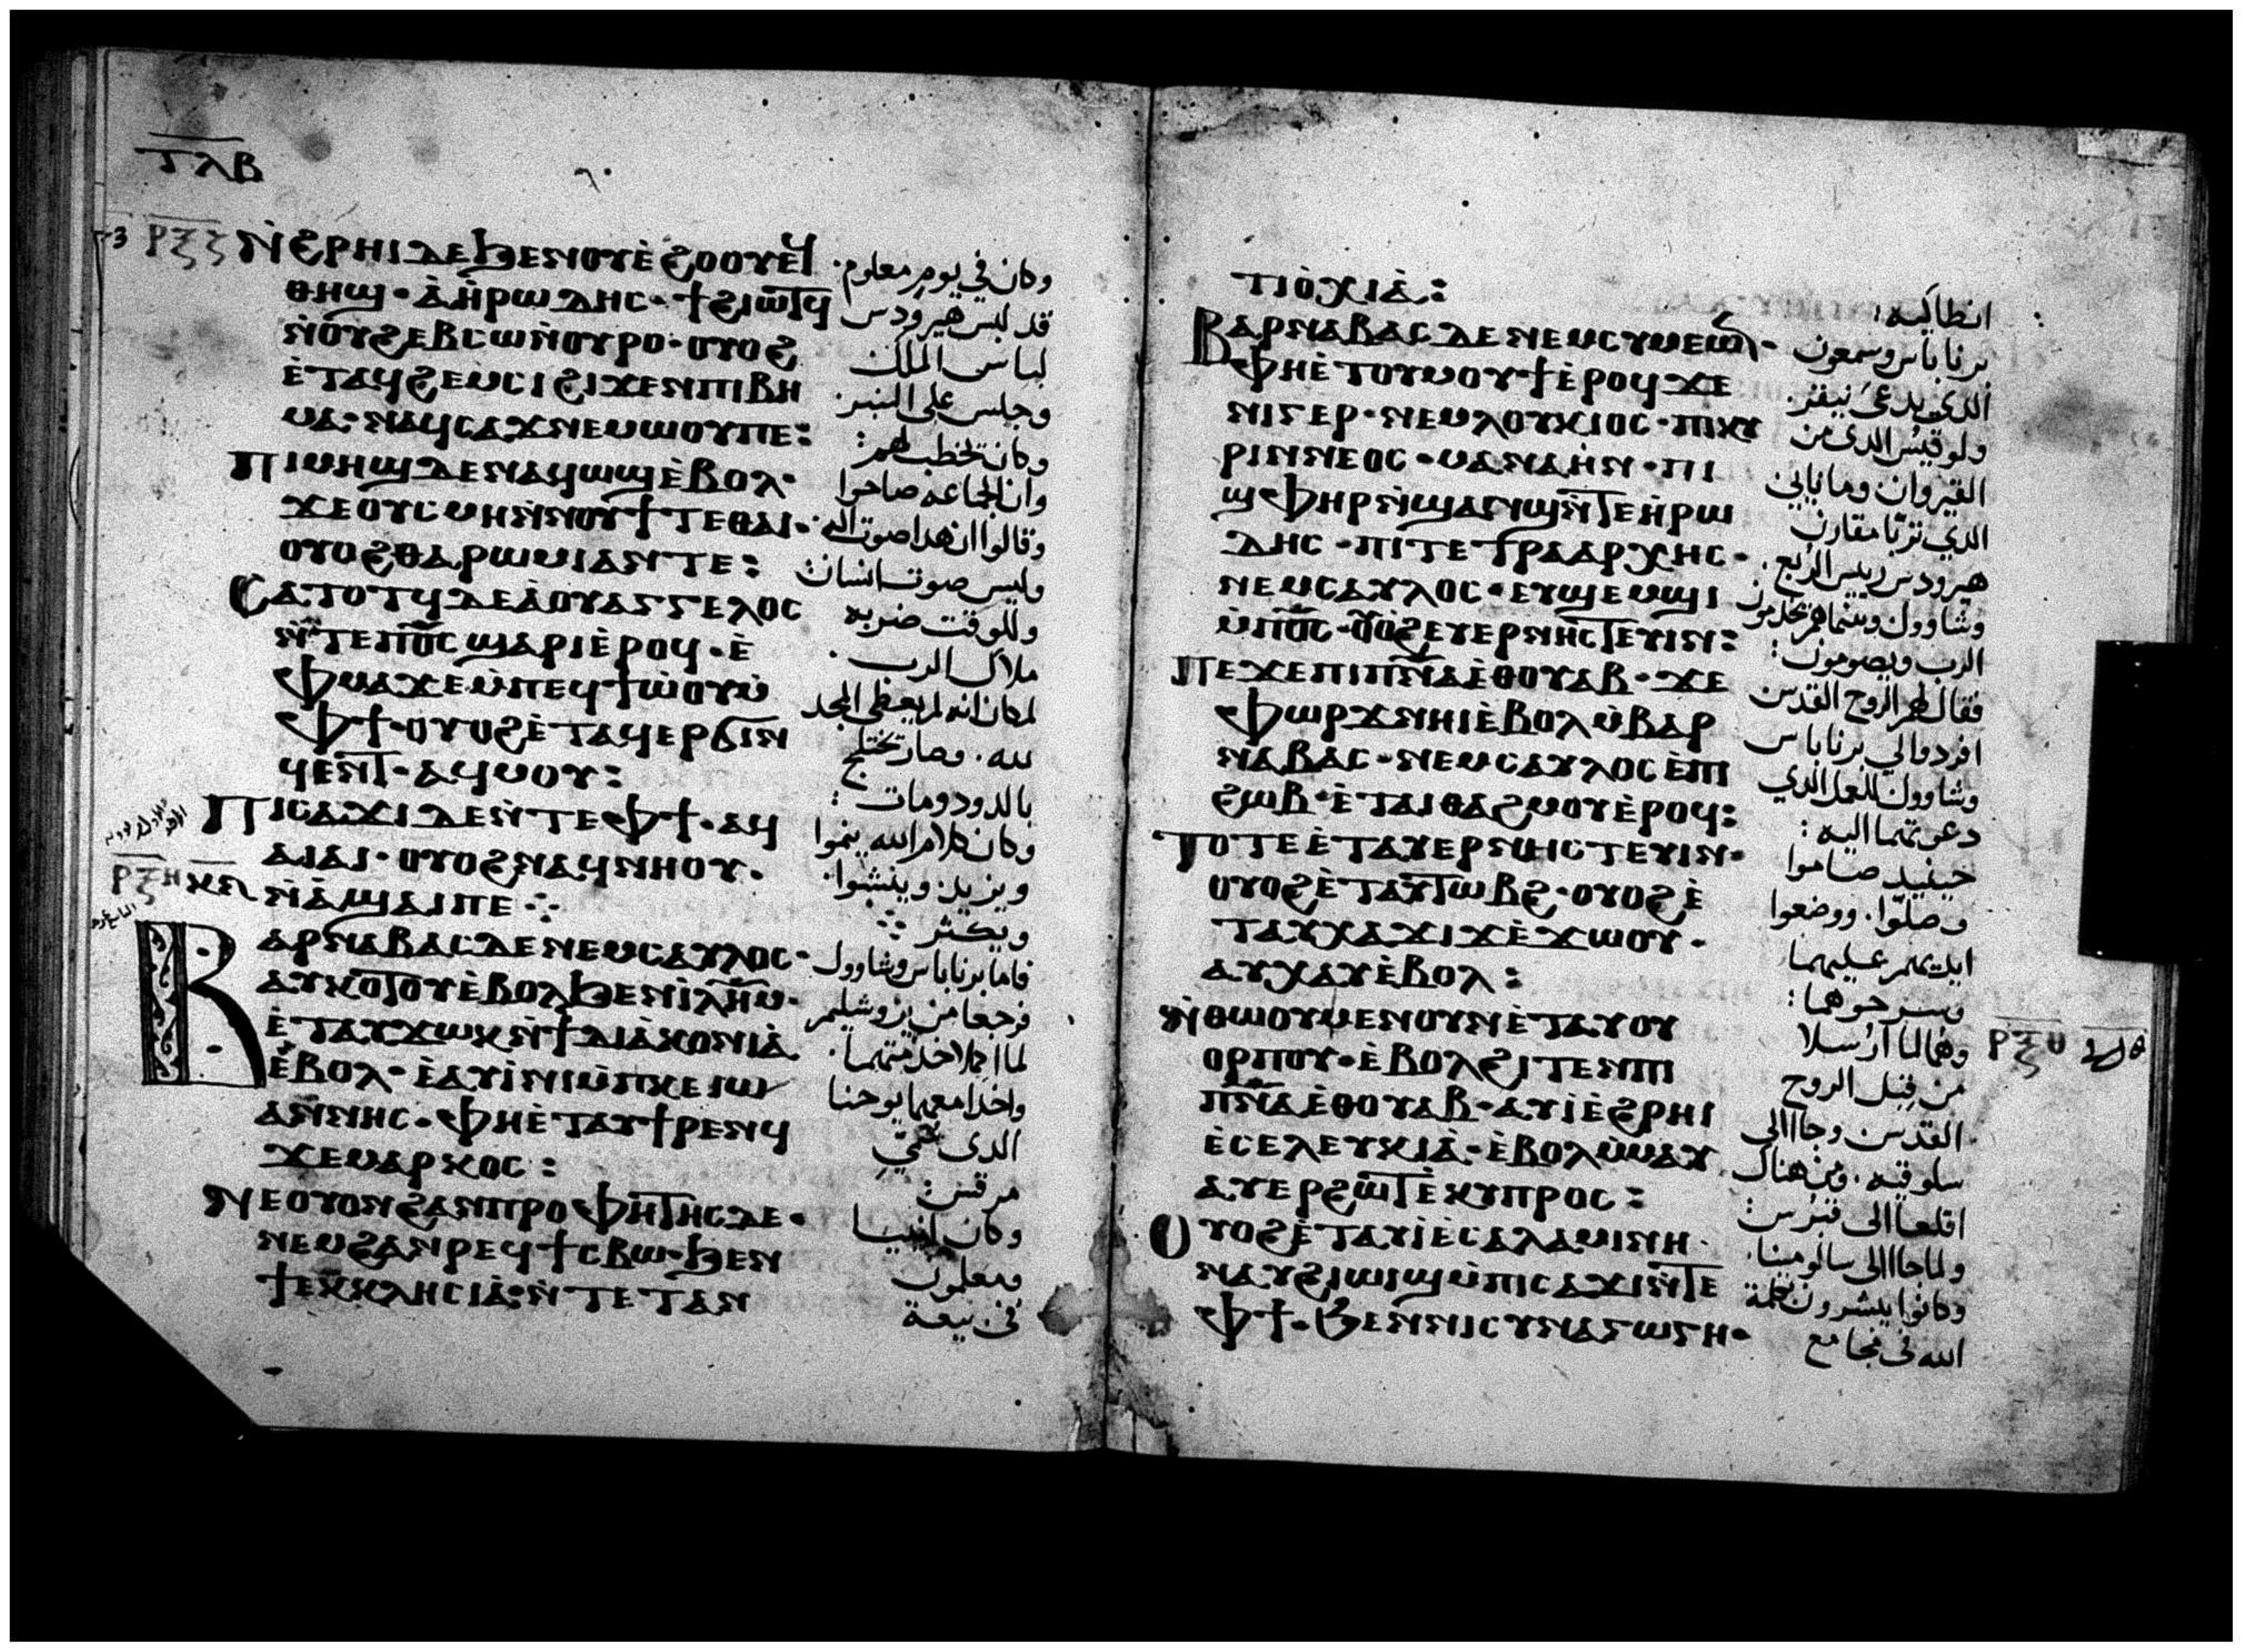 ⲧⲗⲃ
ⲣⲝⲍ
ⲛ̀ϩⲣⲏⲓ ⲇⲉ ϧⲉⲛ ⲟⲩⲉ̀ϩⲟⲟⲩ ⲉϥ
ⲑⲏϣ· ⲁ̀ ⲏ̀ⲣⲱⲇⲏⲥ· ϯϩⲓⲱⲧϥ
ⲛ̀ⲟⲩϩⲉⲃⲥⲱ ⲛ̀ⲟⲩⲣⲟ· ⲟⲩⲟϩ
ⲉ̀ⲧⲁϥϩⲉⲙⲥⲓ ϩⲓϫⲉⲛ ⲡⲓⲃⲏ
ⲙⲁ· ⲛⲁϥⲥⲁϫⲓ ⲛⲉⲙⲱⲟⲩ ⲡⲉ:
ⲡⲓⲙⲏϣ ⲇⲉ ⲛⲁϥⲱϣ ⲉ̀ⲃⲟⲗ·
ϫⲉ ⲟⲩⲥⲙⲏ ⲛ̀ⲛⲟⲩϯ ⲧⲉ ⲑⲁⲓ·
ⲟⲩⲟϩ ⲑⲁ ⲣⲱⲙⲓ ⲁⲛ ⲧⲉ:
ⲥⲁⲧⲟⲧϥ ⲇⲉ ⲁ̀ ⲟⲩⲁⲅⲅⲉⲗⲟⲥ
ⲛ̀ⲧⲉ ⲡ̅ⲟ̅ⲥ̅ ϣⲁⲣⲓ ⲉ̀ⲣⲟϥ· ⲉ̀
ⲫⲙⲁ ϫⲉ ⲙ̀ⲡⲉϥϯⲱ̀ⲟⲩ ⲙ̀
ⲫϯ· ⲟⲩⲟϩ ⲉ̀ⲧⲁϥⲉⲣϭⲓⲛ
ϥⲉⲛⲧ· ⲁϥⲙⲟⲩ:
ⲡⲓⲥⲁϫⲓ ⲇⲉ ⲛ̀ⲧⲉ ⲫϯ· ⲁϥ
ⲁⲓⲁⲓ· ⲟⲩⲟϩ ⲛⲁϥⲛⲏⲟⲩ·
ⲣⲝⲏ ⲛ̀ⲁ̀ϣⲁⲓ ⲡⲉ ⁘
ⲃⲁⲣⲛⲁⲃⲁⲥ ⲇⲉ ⲛⲉⲙ ⲥⲁⲩⲗⲟⲥ·
ⲁⲩⲕⲟⲧⲟⲩ ⲉ̀ⲃⲟⲗ ϧⲉⲛ ⲓ̀ⲗ̅ⲏ̅ⲙ̅·
ⲉ̀ⲧⲁⲩϫⲱⲕ ⲛ̀ϯⲇⲓⲁ̀ⲕⲟⲛⲓⲁ̀
ⲉ̀ⲃⲟⲗ· ⲉ̀ⲁⲩⲓ̀ⲛⲓ ⲙ̀ⲡⲕⲉ ⲓⲱ
ⲁⲛⲛⲏⲥ· ⲫⲏⲉ̀ⲧⲁⲩϯⲣⲉⲛϥ
ϫⲉ ⲙⲁⲣⲕⲟⲥ:
ⲛⲉ ⲟⲩⲟⲛ ϩⲁⲛⲡⲣⲟⲫⲏⲧⲏⲥ ⲇⲉ·
ⲛⲉⲙ ϩⲁⲛⲣⲉϥϯⲥⲃⲱ· ϧⲉⲛ
ϯⲉⲕⲕⲗⲏⲥⲓⲁ̀· ⲛ̀ⲧⲉ ⲧⲁⲛ
وكان في يوم معلوم.
قد لبس هيرودس
لباس الملك
وجلس على المنبر.
وكان يخطب لهم:
وان الجماعة صاحوا
وقالوا ان هدا صوت اله.
وليس صوت انسان
وللوقت ضربه
ملاك الرب.
لمكان انه لم يعطى المجد
لله. وصار يختلج
بالدود ومات:
وكان كلام الله ينموا
ويزيد وينشوا.
ويكثر ⁘
فاما برناباس وشاوول
فرجعا من يروشليم
لما اكملا خدمتهما.
واخدا معهما يوحنا
الدى سمي
مرقس:
وكان انبيا
ومعلمون
في بيعة
ⲧⲓⲟ̀ⲭⲓⲁ̀:
ⲃⲁⲣⲛⲁⲃⲁⲥ ⲇⲉ ⲛⲉⲙ ⲥⲩⲙⲉⲱⲛ·
ⲫⲏⲉ̀ⲧⲟⲩⲙⲟⲩϯ ⲉ̀ⲣⲟϥ ϫⲉ
ⲛⲓⲅⲉⲣ· ⲛⲉⲙ ⲗⲟⲩⲕⲓⲟⲥ· ⲡⲓⲕⲩ
ⲣⲓⲛⲛⲉⲟⲥ· ⲙⲁⲛⲁⲏ̀ⲛ· ⲡⲓ
ϣⲫⲏⲣ ⲛ̀ϣⲁⲛϣ ⲛ̀ⲧⲉ ⲏ̀ⲣⲱ
ⲇⲏⲥ· ⲡⲓⲧⲉⲧⲣⲁⲁⲣⲭⲏⲥ·
ⲛⲉⲙ ⲥⲁⲩⲗⲟⲥ· ⲉⲩϣⲉⲙϣⲓ
ⲙ̀ⲡ̅ⲟ̅ⲥ̅· ⲟⲩⲟϩ ⲉⲩⲉⲣⲛⲏⲥⲧⲉⲩⲓⲛ:
ⲡⲉϫⲉ ⲡⲓⲡ̅ⲛ̅ⲁ̅ ⲉ̀ⲑⲟⲩⲁⲃ· ϫⲉ
ⲫⲱⲣϫ ⲛⲏⲓ ⲉ̀ⲃⲟⲗ ⲙ̀ⲃⲁⲣ
ⲛⲁⲃⲁⲥ· ⲛⲉⲙ ⲥⲁⲩⲗⲟⲥ ⲉ̀ⲡⲓ
ϩⲱⲃ· ⲉ̀ⲧⲁⲓⲑⲁϩⲙⲟⲩ ⲉ̀ⲣⲟϥ:
ⲧⲟⲧⲉ ⲉ̀ⲧⲁⲩⲉⲣⲛⲏⲥⲧⲉⲩⲓⲛ·
ⲟⲩⲟϩ ⲉ̀ⲧⲁⲩⲧⲱⲃϩ· ⲟⲩⲟϩ ⲉ̀
ⲧⲁⲩⲭⲁϫⲓϫ ⲉ̀ϫⲱⲟⲩ·
ⲁⲩⲭⲁⲩ ⲉ̀ⲃⲟⲗ:
ⲛ̀ⲑⲱⲟⲩ ⲙⲉⲛ ⲟⲩⲛ ⲉ̀ⲧⲁⲩⲟⲩ
ⲟⲣⲡⲟⲩ· ⲉ̀ⲃⲟⲗ ϩⲓⲧⲉⲛ ⲡⲓ
ⲡ̅ⲛ̅ⲁ̅ ⲉ̀ⲑⲟⲩⲁⲃ· ⲁⲩⲓ̀ ⲉ̀ϩⲣⲏⲓ
ⲉ̀ⲥⲉⲗⲉⲩⲕⲓⲁ̀· ⲉ̀ⲃⲟⲗ ⲙ̀ⲙⲁⲩ
ⲁⲩⲉⲣϩⲱⲧ ⲉ̀ⲕⲩⲡⲣⲟⲥ:
ⲟⲩⲟϩ ⲉ̀ⲧⲁⲩⲓ̀ ⲉ̀ⲥⲁⲗⲁⲙⲓⲛⲏ·
ⲛⲁⲩϩⲓⲱⲓϣ ⲙ̀ⲡⲓⲥⲁϫⲓ ⲛ̀ⲧⲉ
ⲫϯ· ϧⲉⲛ ⲛⲓⲥⲩⲛⲁⲅⲱⲅⲏ·
انطاكيه:
برناباس وسمعون
الدي يدعى نيفر.
ولوقيس الدى من
القيروان وماناين
الدي تربا مقارن
هيرودس رييس الربع.
وشاوول وبينما هم يخدمون
الرب ويصومون:
فقال لهم الروح القدس
افردوا لي برناباس
وشاوول للعمل الدي
دعوتهما اليه:
حينيد صاموا
وصلوا. ووضعوا
ايديهم عليهما
وسرحوهما:
وهما لما ارسلا
من قبل الروح
القدس وجاا الى
سلوقيه. ومن هناك
اقلعا الى قبرس:
ولما جاا الى سالومينا.
وكانوا يبشرون بكلمة
الله في مجامع
ⲣⲝⲑ